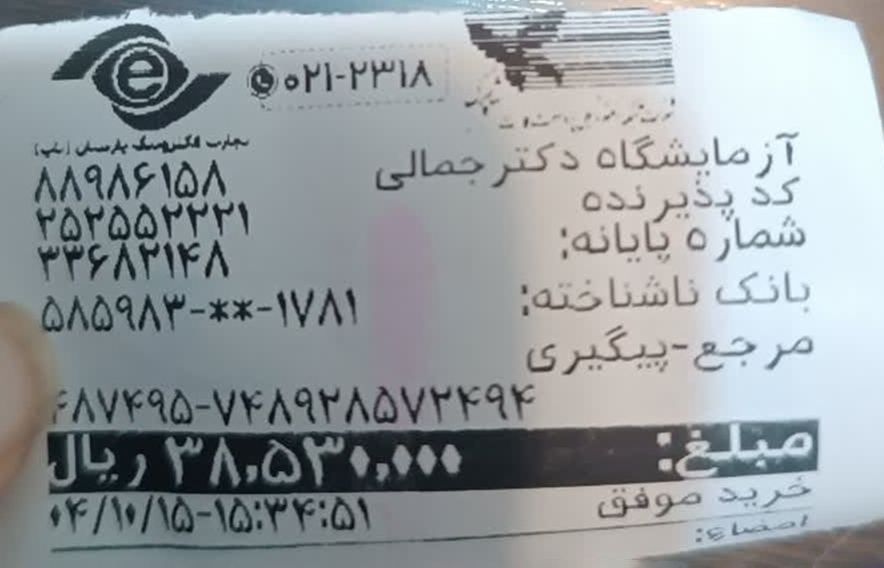 ۰۲۱-۲۳۱۸
تجارت الکترونیک پارسیان (تاپ)
آزمایشگاه دکتر جمالی ۸۸۹۸۶۱۵۸
کد پذیرنده ۲۵۲۵۵۲۲۲۱
شماره پایانه: ۳۳۶۸۲۱۴۸
بانک ناشناخته: ۵۸۵۹۸۳-**-۱۷۸۱
مرجع-پیگیری
۶۸۷۴۹۵-۷۴۸۹۲۸۵۷۲۴۹۴
مبلغ: ۳۸,۵۳۰,۰۰۰ ریال
خرید موفق ۰۴/۱۰/۱۵-۱۵:۳۴:۵۱
امضاء: